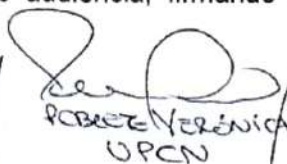 audiencia, firmando
POBLETE VERÓNICA
UPCN